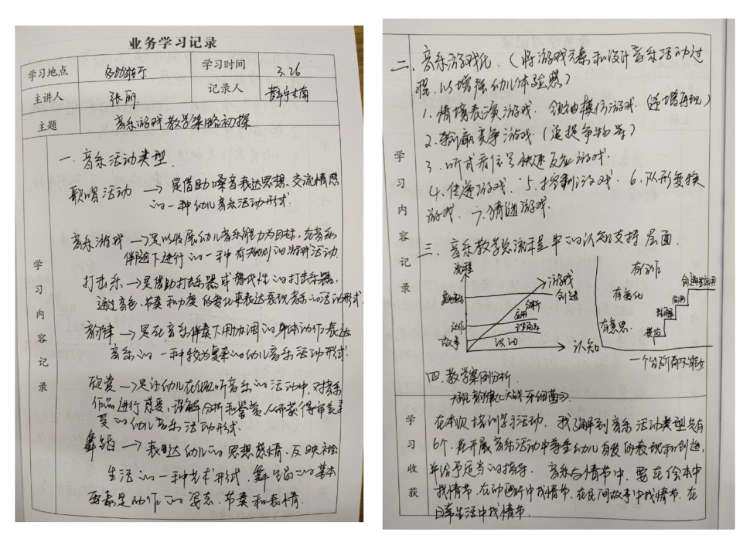 业务学习记录
学习地点 学习时间 3.26
主讲人 张丽 记录人
主题 音乐游戏教学策略初探
学习内容记录
一.音乐活动类型
歌唱活动 → 是借助嗓音表达思想、交流情感
的一种幼儿音乐活动形式.
音乐游戏 → 是以发展幼儿音乐能力为目标,在音乐
伴随下进行的一种有规则的游戏活动.
打击乐 → 是借助打击乐器或替代性的打击乐器,
通过音色、节奏和力度的变化来表达表现音乐的活动形式
→ 是在音乐伴奏下用协调的身体动作表达
音乐的一种较为的幼儿音乐活动形式.
欣赏 → 是让幼儿在倾听音乐的活动中,对音乐
作品进行感受,理解分析和鉴赏,从而获得审美享
受的幼儿音乐活动形式.
舞蹈 → 表达幼儿的思想感情,反映社会
生活的一种艺术形式,舞蹈的基本
要素是动作的姿态、节奏和表情
二.音乐游戏化.(将游戏元素和设计音乐活动过
程,以增强幼儿体验感)
1.情境表演游戏. 领袖模仿游戏.(递增再现)
2.输赢竞争游戏(追捉争物等)
3.听或看信号快速反应游戏.
4.传递游戏. 5.控制游戏. 6.队形变换
游戏. 7.猜谜游戏.
学习内容记录
三.音乐教学中的认知支持层面.
游戏
创造
故事
活动
认知
有动作
有变化
有意思.
四.教学案例分析.
学习收获
在本次培训学习活动,我了解到音乐活动类型总有
6个,在开展音乐活动中尊重幼儿自发的表现和创造,
并给予适当的指导. 音乐与情节中,要在绘本中
找情节,在动画片中找情节,在民间故事中找情节,在
日常生活中找情节.